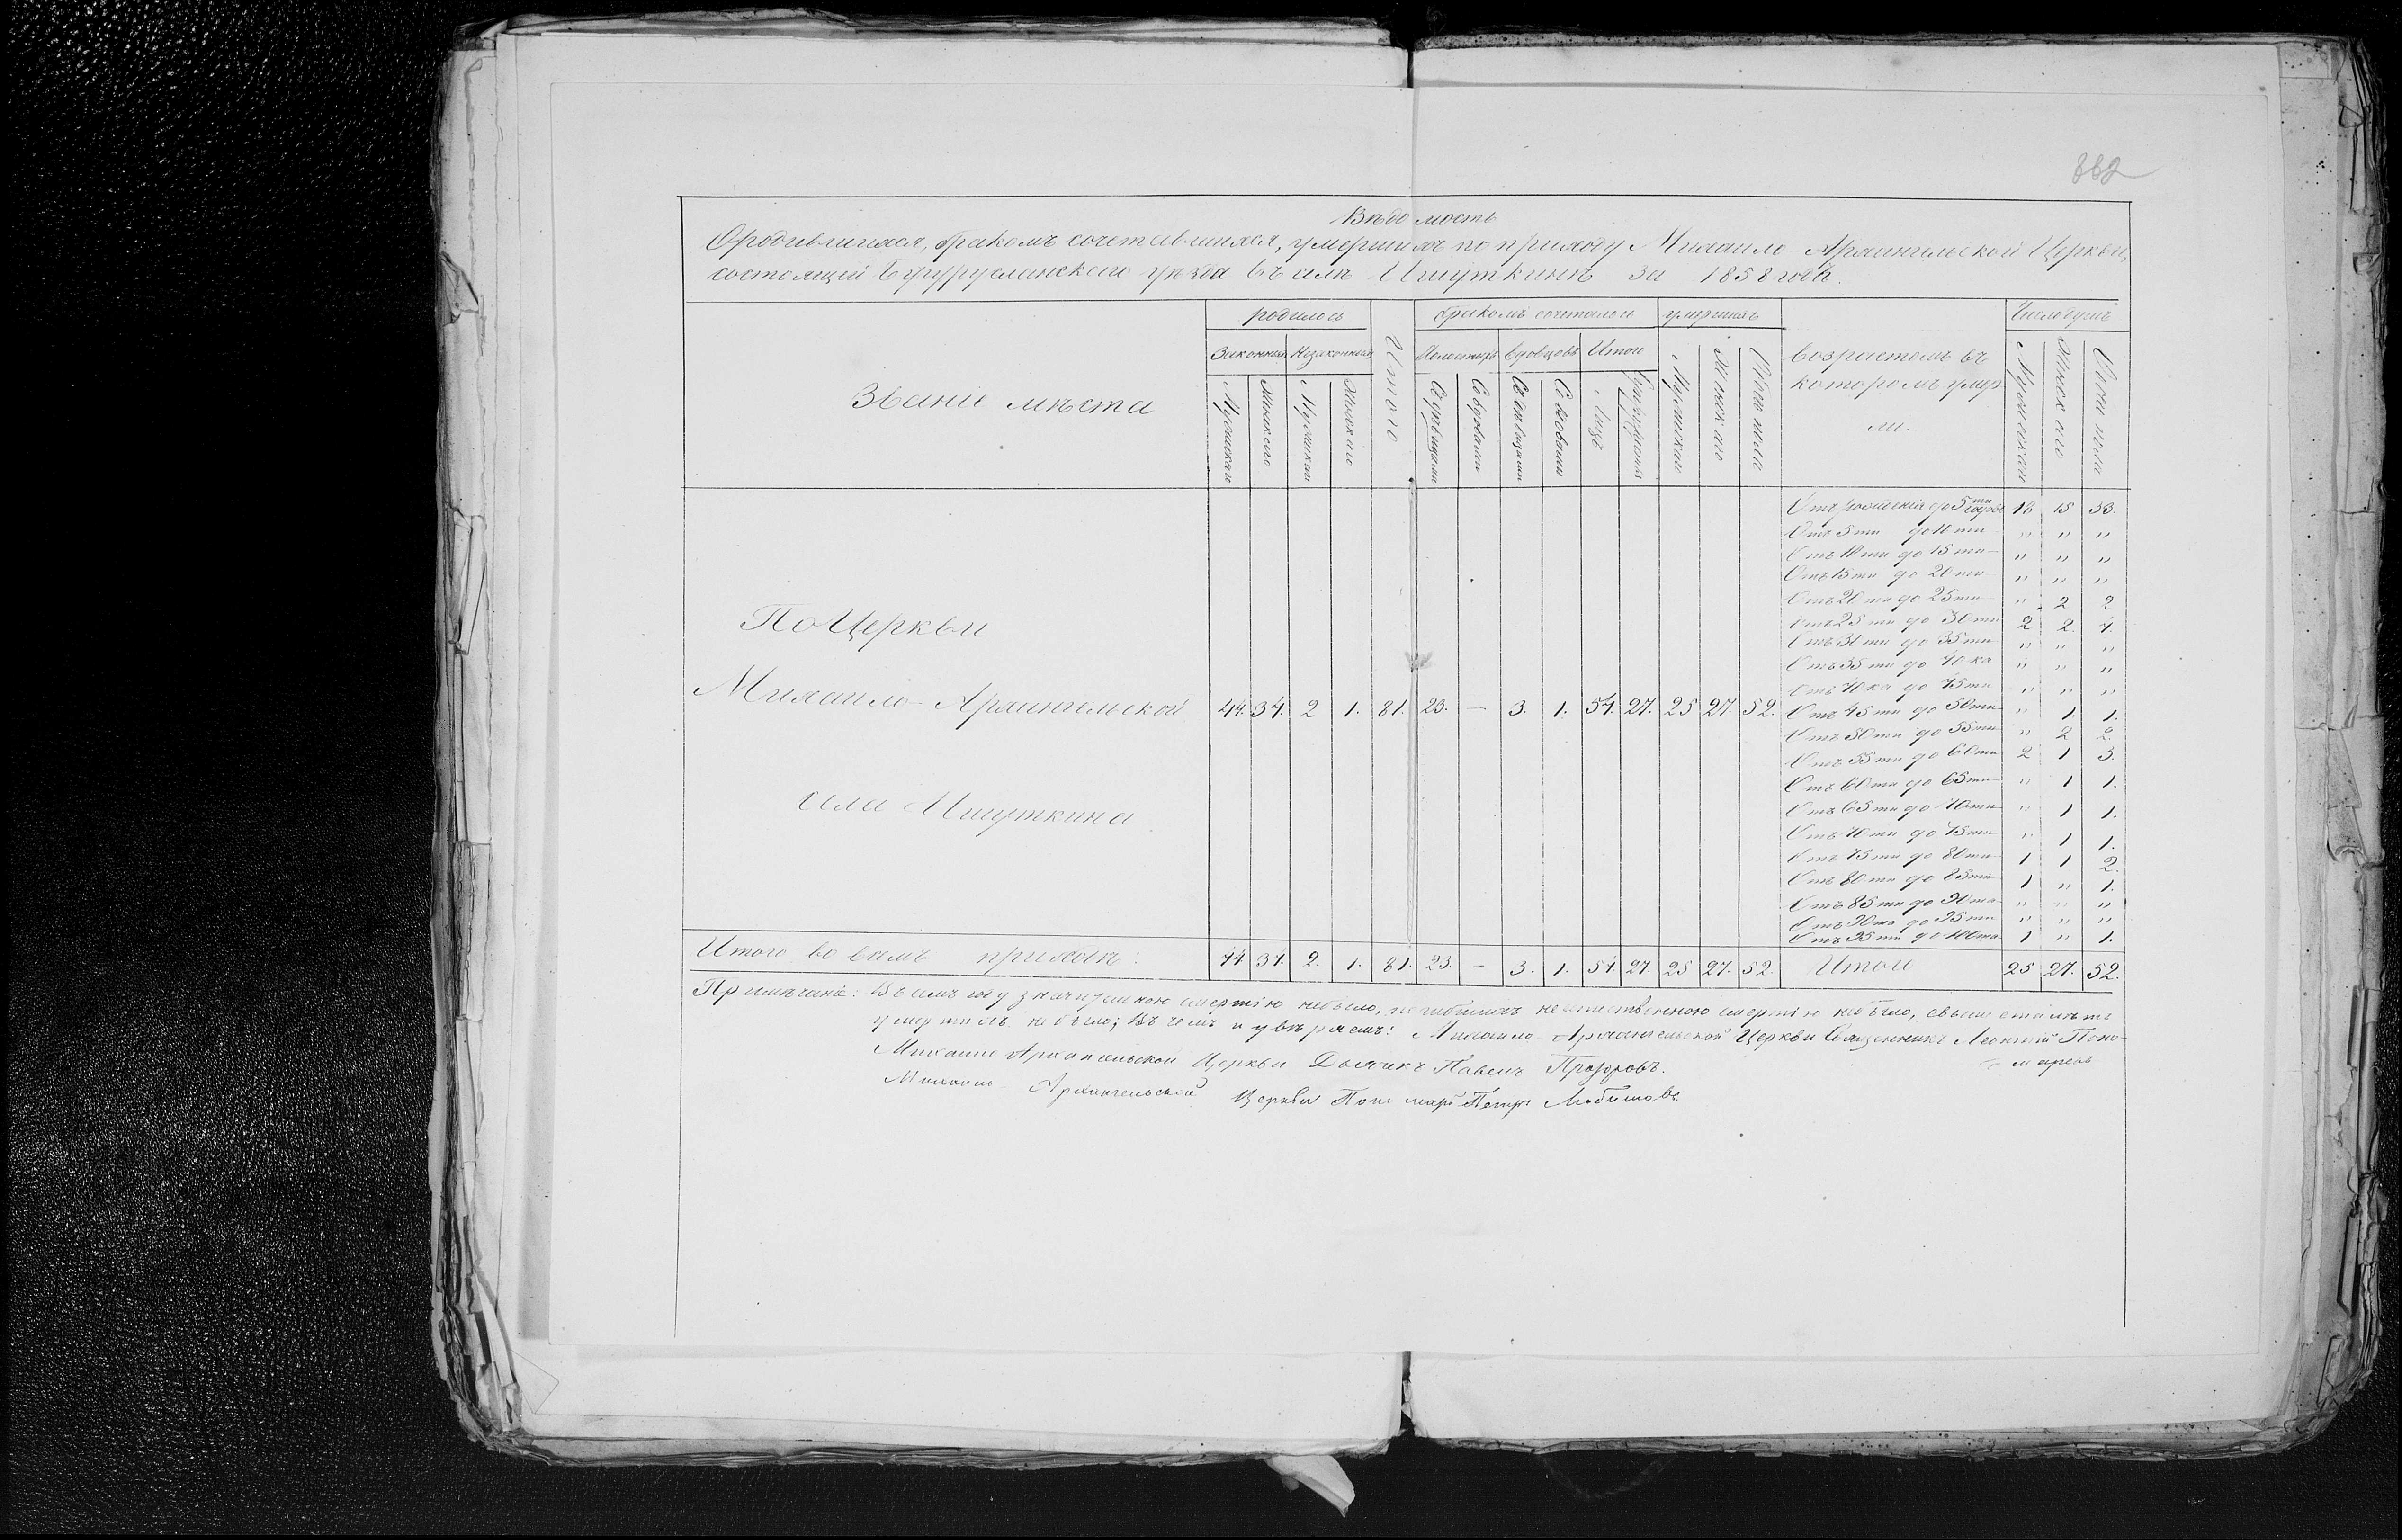 882
Вѣдомость
О родившихся, бракомъ сочетавшихся, умершихъ по приходу Михаило-Архангельской Церкви,
состоящей Бугурусланскаго уѣзда въ селѣ Ишуткинѣ за 1858 годъ.
родилось бракомъ сочеталось умершихъ Число душъ
Законныхъ Незаконныхъ Итого Холостыхъ вдовцовъ Итого
Званіе мѣста
Мужескаго Женскаго Мужескаго Женскаго Съ дѣвицами Со вдовами Съ дѣвицами Со вдовами Лицъ Супружествъ Мужескаго Женскаго Обоего пола
возрастомъ въ
которомъ умер
ли.
Мужескаго Женскаго Обоего пола
Отъ рожденія до 5ти годовъ 18 15 33.
Отъ 5ти до 10ти " " "
Отъ 10ти до 15ти " " "
Отъ 15ти до 20ти " " "
Отъ 20ти до 25ти " 2 2
Отъ 25ти до 30ти 2 2. 4.
Отъ 30ти до 35ти " " "
Отъ 35ти до 40ка " " "
Отъ 40ка до 45ти " " "
Отъ 45ти до 50ти " 1. 1.
Отъ 50ти до 55ти " 2 2.
Отъ 55ти до 60ти 2 1 3.
Отъ 60ти до 65ти " 1 1.
Отъ 65ти до 70ти " 1 1.
Отъ 70ти до 75ти " 1 1.
Отъ 75ти до 80ти 1 1 2.
Отъ 80ти до 85ти 1 " 1.
Отъ 85ти до 90та " " "
Отъ 90та до 95ти " " "
Отъ 95ти до 100та 1 " 1.
По Церкви
Михаило-Архангельской 44. 34. 2 1. 81. 23. — 3. 1. 54. 27. 25 27. 52.
села Ишуткина
Итого во всемъ приходѣ: 44 34. 2. 1. 81. 23. — 3. 1. 54. 27. 25 27. 52. Итого 25 27. 52.
Примѣчаніе: Въ семъ году смертію небыло, погибшихъ неестественною смертію небыло, свыше ста лѣтъ
умершихъ небыло; Въ чемъ и увѣряемъ: Михаило-Архангельской Церкви Священникъ Леонтій Поно-
маревъ
Михаило Архангельской Церкви Дьячекъ Павелъ Прозоровъ.
Михаило-Архангельской Церкви Пономарь Петръ